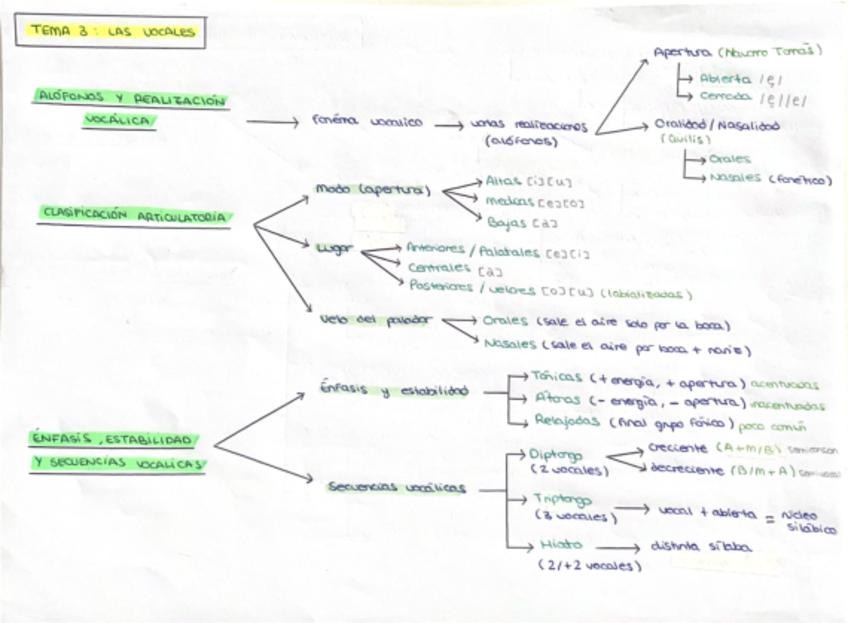 TEMA 3: LAS VOCALES
ALÓFONOS Y REALIZACIÓN
VOCÁLICA
fonema vocálico
varias realizaciones
(alófonos)
Apertura (Navarro Tomás)
Abierta /ę/
Cerrada /ẹ/ /e/
Oralidad/Nasalidad
(Quilis)
Orales
Nasales (fonético)
CLASIFICACIÓN ARTICULATORIA
Modo (apertura)
Altas [i][u]
medias [e][o]
Bajas [a]
Lugar
Anteriores / Palatales [e][i]
Centrales [a]
Posteriores / velares [o][u] (labializadas)
Velo del paladar
Orales (sale el aire solo por la boca)
Nasales (sale el aire por boca + nariz)
ÉNFASIS, ESTABILIDAD
Y SECUENCIAS VOCÁLICAS
Énfasis y estabilidad
Tónicas (+ energía, + apertura) acentuadas
Átonas (- energía, - apertura) inacentuadas
Relajadas (final grupo fónico) poco común
Secuencias vocálicas
Diptongo
(2 vocales)
creciente (A+M/B)
decreciente (B/M+A)
Triptongo
(3 vocales)
vocal + abierta = núcleo
silábico
Hiato
(2/+2 vocales)
distinta sílaba